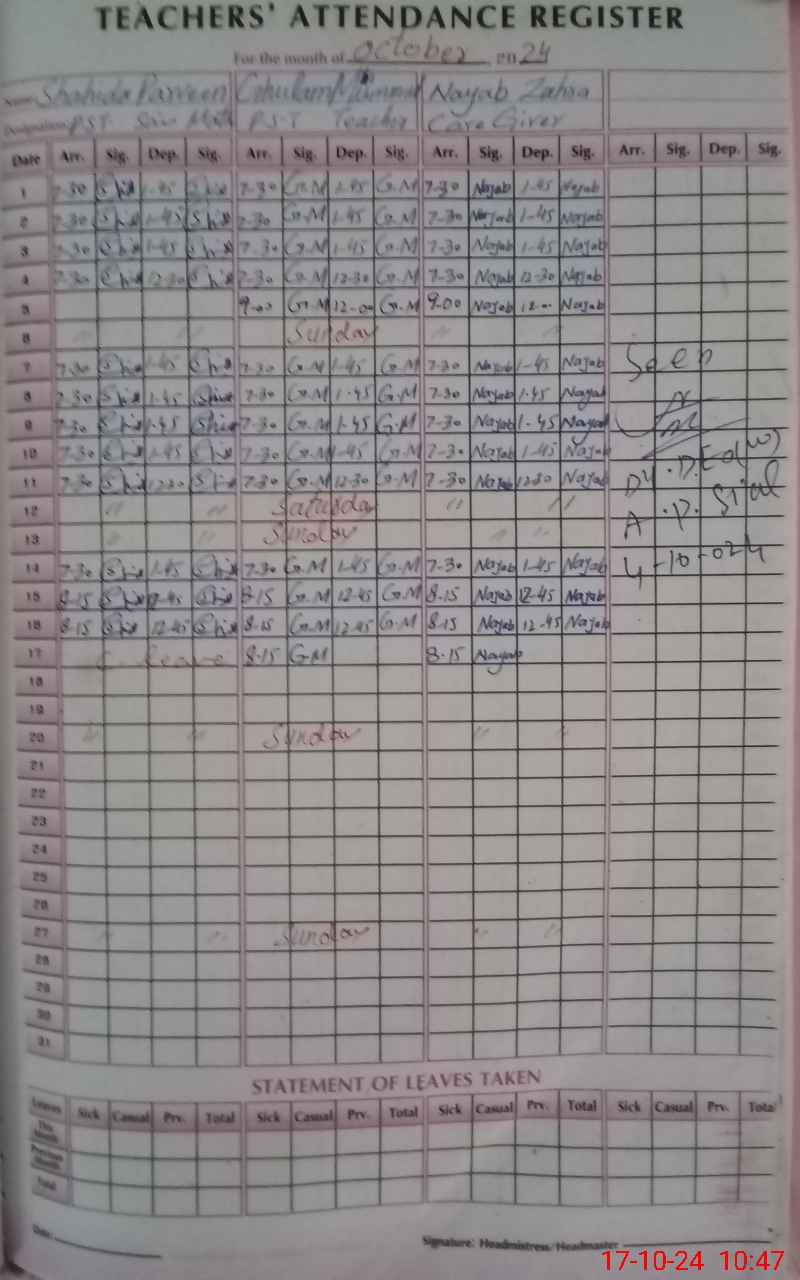 TEACHERS' ATTENDANCE REGISTER
For the month of October, 2024
Name Shahida Parveen Ghulam Nayab Zahra
Designation PST P.S.T Teacher Care Giver
Date Arr. Sig. Dep. Sig. Arr. Sig. Dep. Sig. Arr. Sig. Dep. Sig. Arr. Sig. Dep. Sig.
1 7-30 1-45 7-30 G.M 1-45 G.M 7-30 Nayab 1-45 Nayab
2 7-30 1-45 7-30 G.M 1-45 G.M 7-30 Nayab 1-45 Nayab
3 7-30 1-45 7-30 G.M 1-45 G.M 7-30 Nayab 1-45 Nayab
4 7-30 12-30 7-30 G.M 12-30 G.M 7-30 Nayab 12-30 Nayab
5 9-00 G.M 12-00 G.M 9-00 Nayab 12-- Nayab
6 " " Sunday " "
7 7-30 1-45 7-30 G.M 1-45 G.M 7-30 Nayab 1-45 Nayab Seen
8 7-30 1-45 7-30 G.M 1-45 G.M 7-30 Nayab 1-45 Nayab
9 7-30 1-45 7-30 G.M 1-45 G.M 7-30 Nayab 1-45 Nayab
10 7-30 1-45 7-30 G.M 1-45 G.M 7-30 Nayab 1-45 Nayab
11 7-30 12-30 7-30 G.M 12-30 G.M 7-30 Nayab 12-30 Nayab Dy. D.E.O (W)
12 " " Saturday " "
13 " " Sunday " " A.P. Sial
14 7-30 1-45 7-30 G.M 1-45 G.M 7-30 Nayab 1-45 Nayab 4-10-024
15 8-15 12-45 8-15 G.M 12-45 G.M 8-15 Nayab 12-45 Nayab
16 8-15 12-45 8-15 G.M 12-45 G.M 8-15 Nayab 12-45 Nayab
17 leave 8-15 G.M 8-15 Nayab
18
19
20 " " Sunday " "
21
22
23
24
25
26
27 " " Sunday " "
28
29
30
31
STATEMENT OF LEAVES TAKEN
Leaves Sick Casual Prv. Total Sick Casual Prv. Total Sick Casual Prv. Total Sick Casual Prv. Total
This Month
Previous Month
Total
Date: Signature: Headmistress/Headmaster
17-10-24 10:47